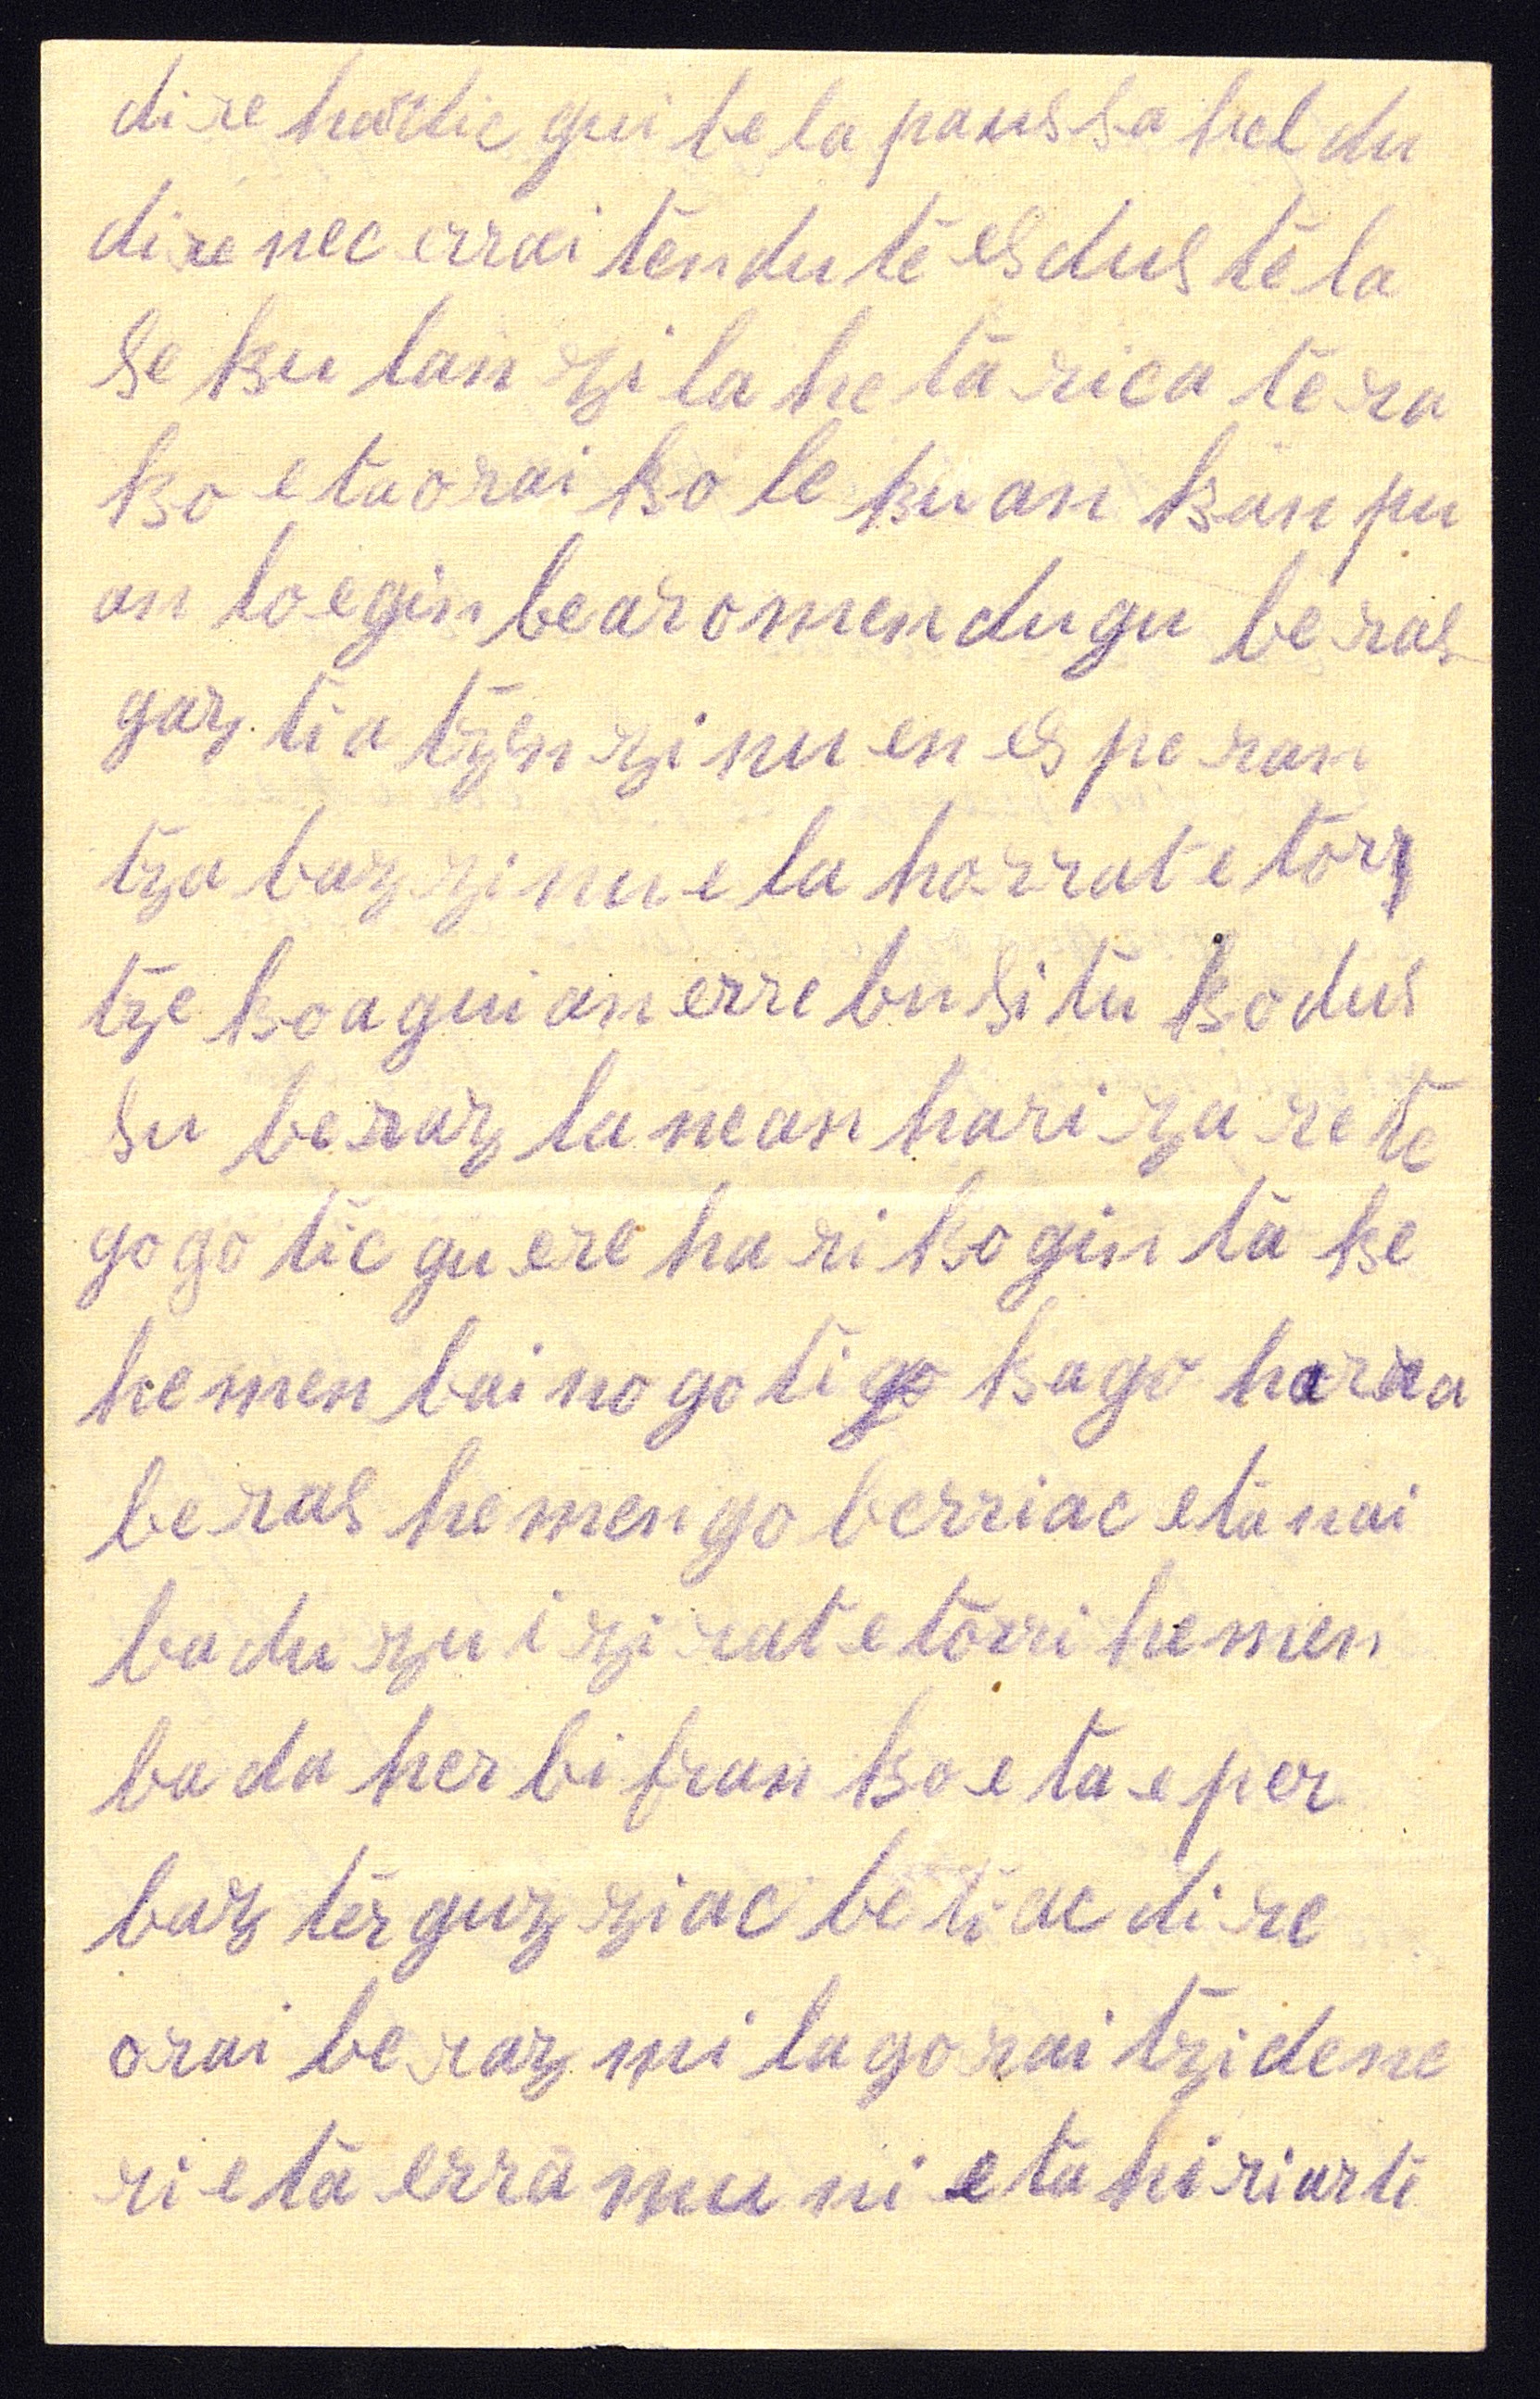 dire hortic gui bela paussa heldu
direnec erraitendute esdustela
sekulan zila hetaricatera
ko etaoraiko lekuan kanpu
an lo eginbearomendugu beras
gaztiatzenzinuen esperan
tza bazzinuela horrat etorr
tzekoaguian errebusituko dus
su beraz lanean hari zarete
gogotic guere hariko gintake
hemen baino gotigo kago harra
beras hemengo berriac etanai
baduzu izirat etorri hemen
bada herbi franko eta eper
bazter guzziac betiac dire
orai beraz mila goraitzi dene
ri eta erramuni eta hiriarti